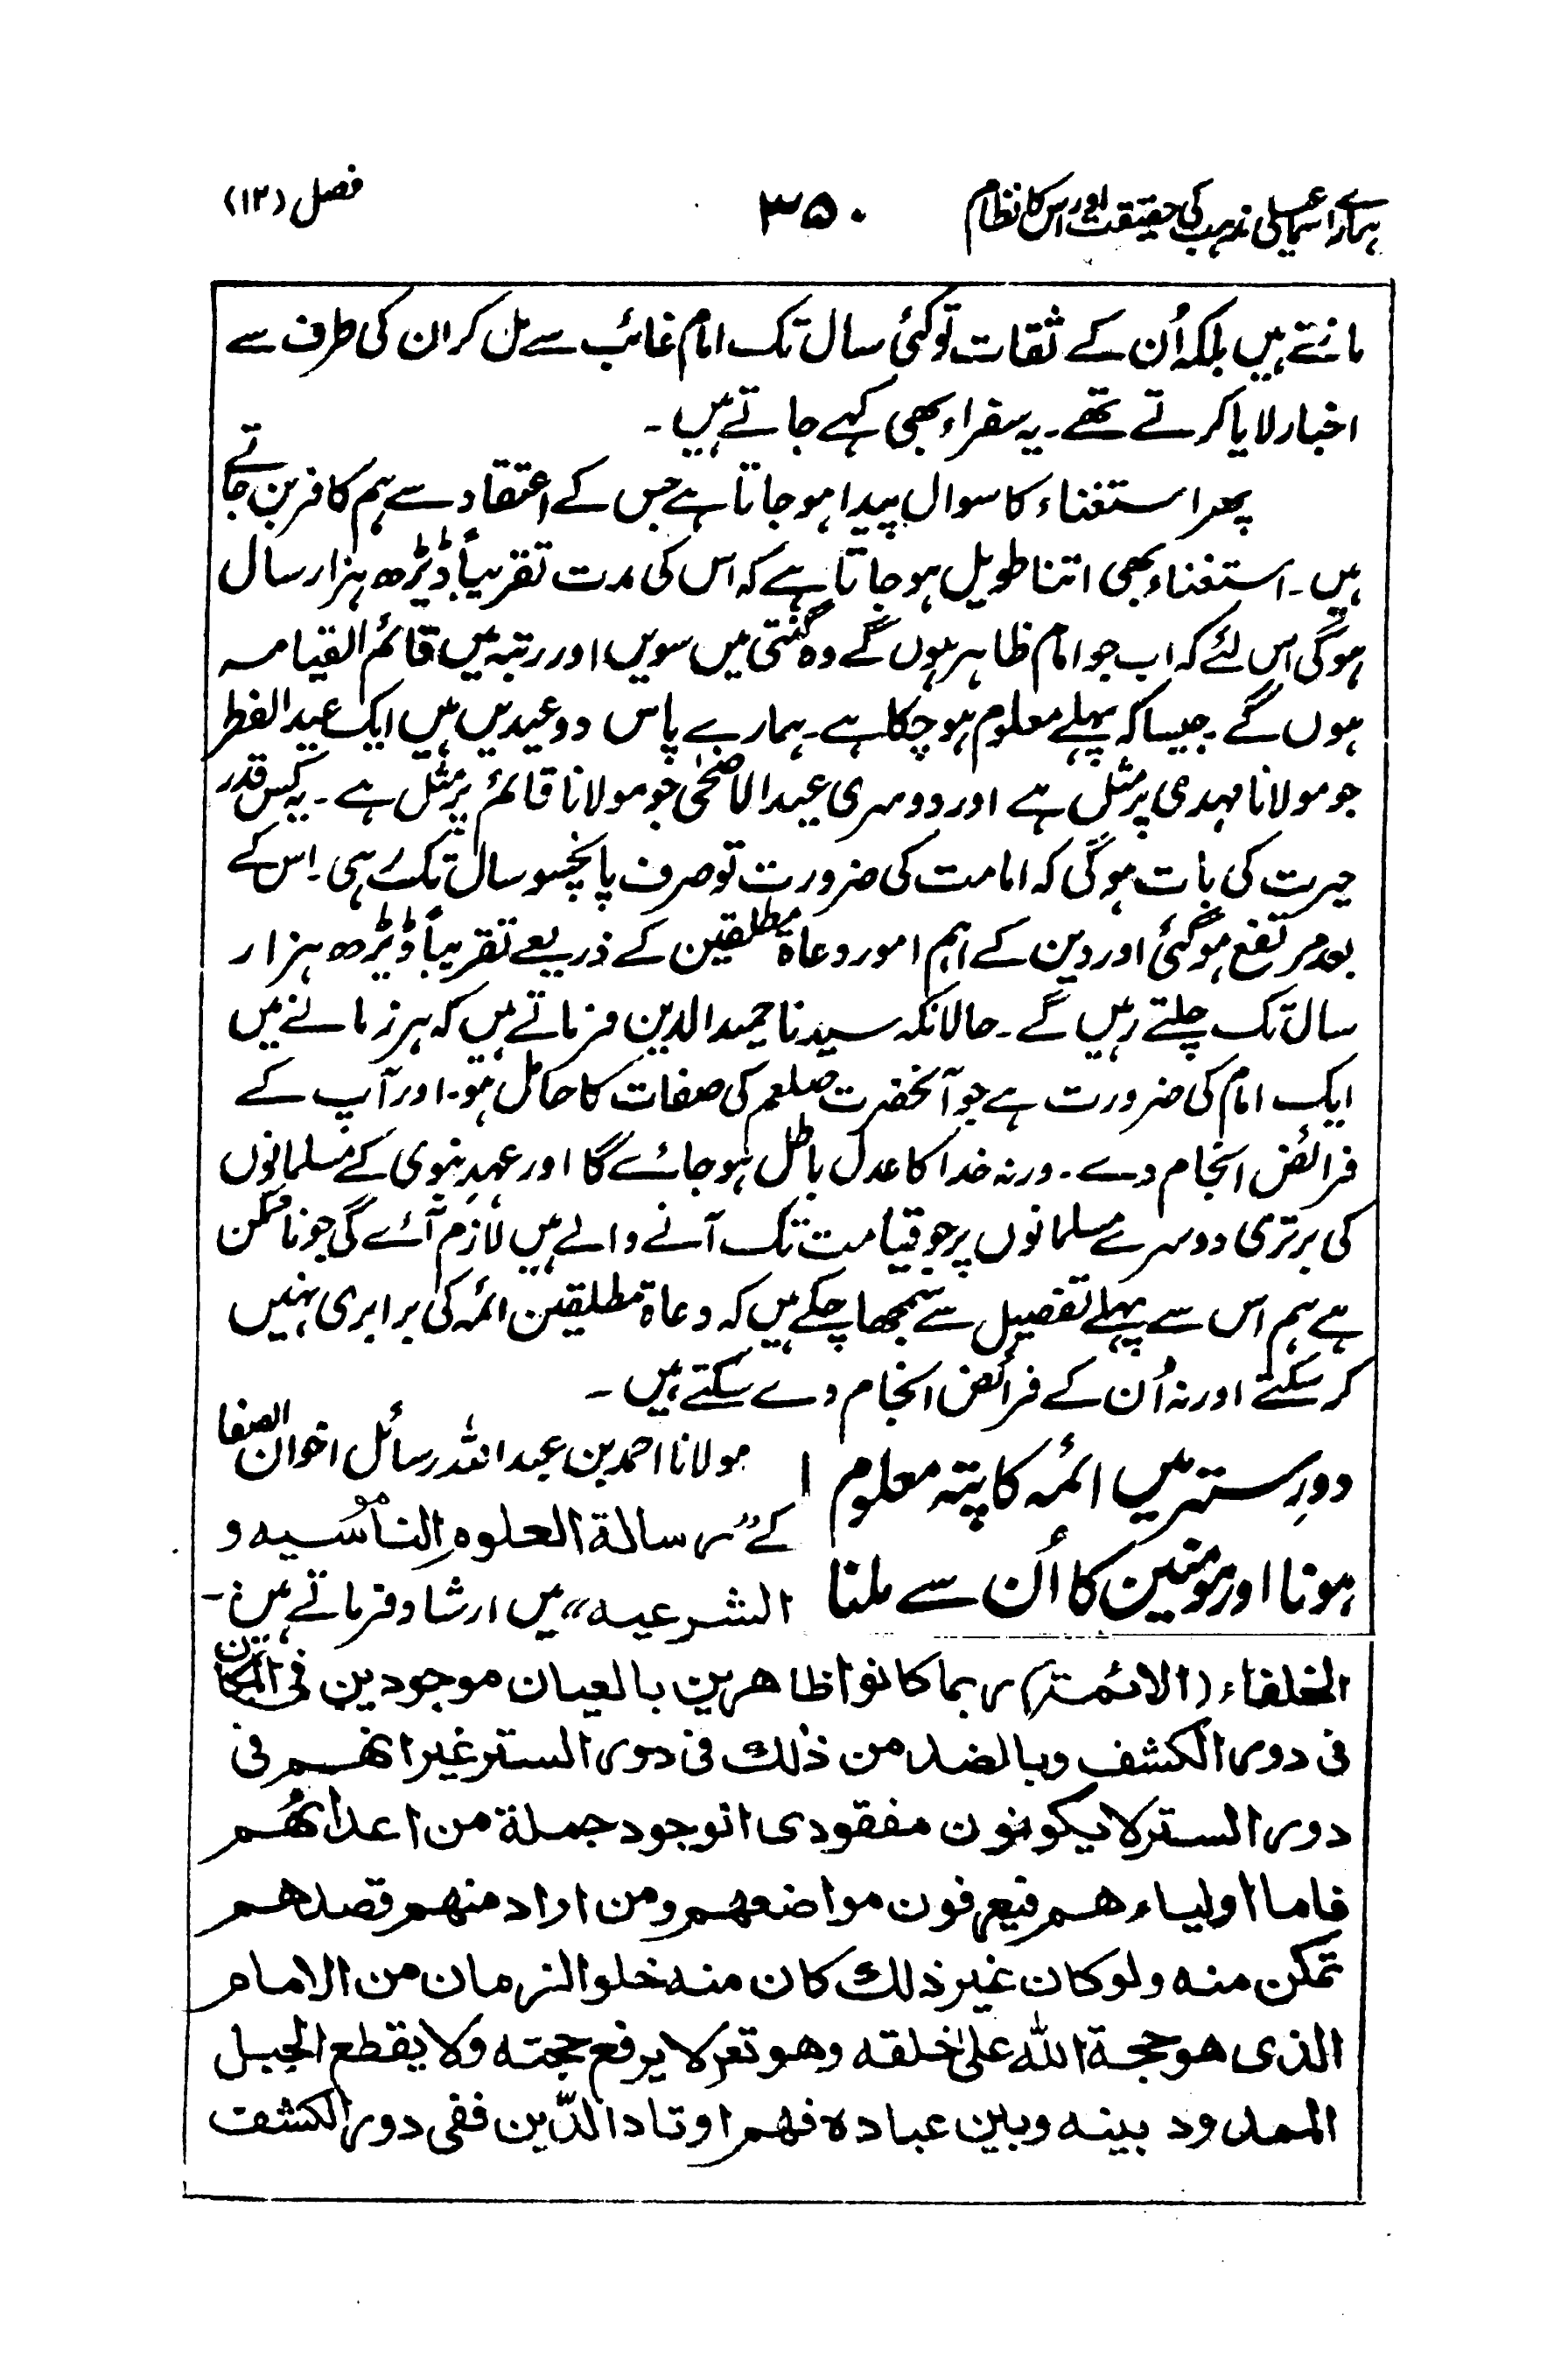 ہمارے اسماعیلی مذہب کی حقیقت اور اس کا نظام
۳۵۰
فصل (۱۲)
مانتے ہیں بلکہ اُن کے ثقات تو کئی سال تک امام غائب سے مل کر ان کی طرف سے
اخبار لایا کرتے تھے ۔ یہ سفراء بھی کہے جاتے ہیں ۔
پھر استغناء کا سوال پیدا ہو جاتا ہے جس کے اعتقاد سے ہم کافر بن جاتے
ہیں ۔ استغناء بھی اتنا طویل ہو جاتا ہے کہ اس کی مدت تقریباً ڈیڑھ ہزار سال
ہوگی اس لئے کہ اب جو امام ظاہر ہوں گے وہ گنتی میں سویں اور رتبہ میں قائم القیامہ
ہوں گے ۔ جیسا کہ پہلے معلوم ہو چکا ہے ۔ ہمارے پاس دو عیدیں ہیں ایک عید الفطر
جو مولانا مہدی پر مثل ہے اور دوسری عید الاضحٰی جو مولانا قائم پر مثل ہے ۔ یہ کس قدر
حیرت کی بات ہوگی کہ امامت کی ضرورت تو صرف پانچسو سال تک رہی ۔ اس کے
بعد مرتفع ہوگئی اور دین کے اہم امور دعاۃ مطلقین کے ذریعے تقریباً ڈیڑھ ہزار
سال تک چلتے رہیں گے ۔ حالانکہ سیدنا حمید الدین فرماتے ہیں کہ ہر زمانے میں
ایک امام کی ضرورت ہے جو آنحضرت صلعم کی صفات کا حامل ہو ۔ اور آپ کے
فرائض انجام دے ۔ ورنہ خدا کا عدل باطل ہو جائے گا اور عہدِ نبوی کے مسلمانوں
کی برتری دوسرے مسلمانوں پر جو قیامت تک آنے والے ہیں لازم آئے گی جو ناممکن
ہے ہم اس سے پہلے تفصیل سے سمجھا چکے ہیں کہ دعاۃ مطلقین ائمہ کی برابری نہیں
کر سکتے اور نہ اُن کے فرائض انجام دے سکتے ہیں ۔
دورِ ستر میں ائمہ کا پتہ معلوم
ہونا اور مومنین کا اُن سے ملنا
مولانا احمد بن عبد اللہ رسائل اخوان الصفا
کے ”رسالة العلوم الناموسيه و
الشرعيه“ میں ارشاد فرماتے ہیں :-
الخلفاء (الائمة) ربما كانوا ظاهرين بالعيان موجودين فى المكان
فى دور الكشف وبالضد من ذلك فى دور الستر غير انهم فى
دور الستر لا يكونون مفقودى الوجود جملة من اعدائهم
فاما اولياءهم فيعرفون مواضعهم ومن اراد منهم قصدهم
تمكن منه ولو كان غير ذلك كان منه خلو الزمان من الامام
الذى هو حجة الله على خلقه وهو تع لا يرفع حجته ولا يقطع الحبل
الممدود بينه وبين عباده فهم اوتاد الدّين ففى دور الكشف